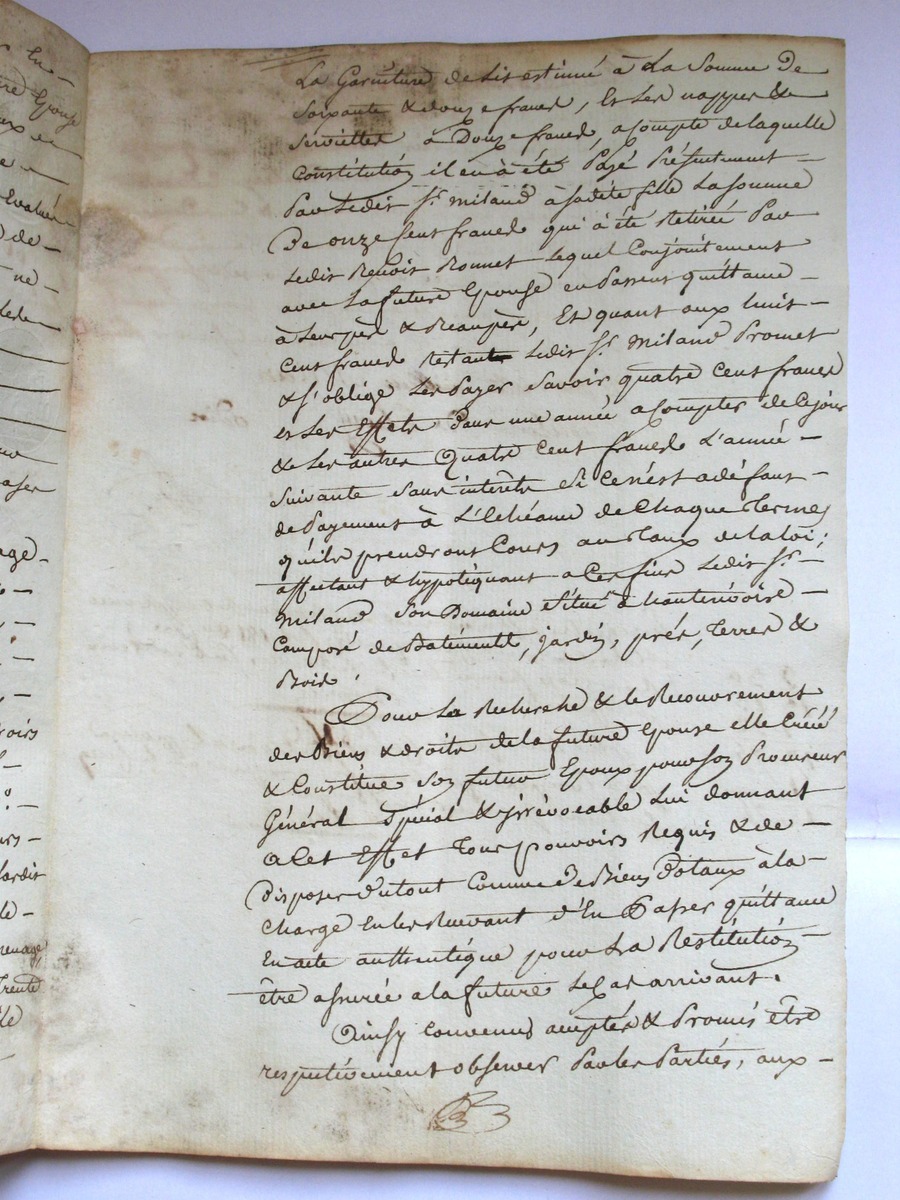 La Garniture de Lis estimé à La Somme de
Soixante & douze francs, Et Les nappes &
Serviettes à Douze francs, a Compte de laquelle
Constitution il en à été Payé Présentement
Par Ledit Sr. miland à sadite fille La somme
De onze Cent francs qui à été Retirée Par
Ledit Benoit Bonnet lequel Conjointement
avec La future Epouse en Passent quittance
à Leur père & Beaupère, Et quant aux huit
Cent francs restants Ledit Sr. Miland Promet
& s'oblige Les Payer Savoir quatre Cent francs
et Les Effets Dans une année a Compter de Cejour
& Les autres Quatre Cent francs L'année
Suivante Sans interêts Si Ce n'est a défaut
de Payement à L'Echéance de Chaque Termes
qu'ils prendront Cours au Taux de la Loi;
affectant & hypotéquant a Ces fins Ledit Sr.
miland Son Domaine Situé à hauterivoire
Composé de Batiments, jardin, prés, Terres &
Bois.
Pour La Recherche & le Recouvrement
des Biens & droits de la future Epouse elle Créé
& Constitue Son futur Epoux pour Son Procureur
Général Spécial & irrévocable Lui donnant
a Cet Effet Tous pouvoirs Requis & de
Disposer du tout Comme de Biens Dotaux à la
Charge En les Recevant d'En Passer quittance
En acte authentique pour La Restitution
être assurée a la future Le Cas arrivant.
Ainsy Convenus acceptés & Promis être
respectivement observer Par les Parties, aux